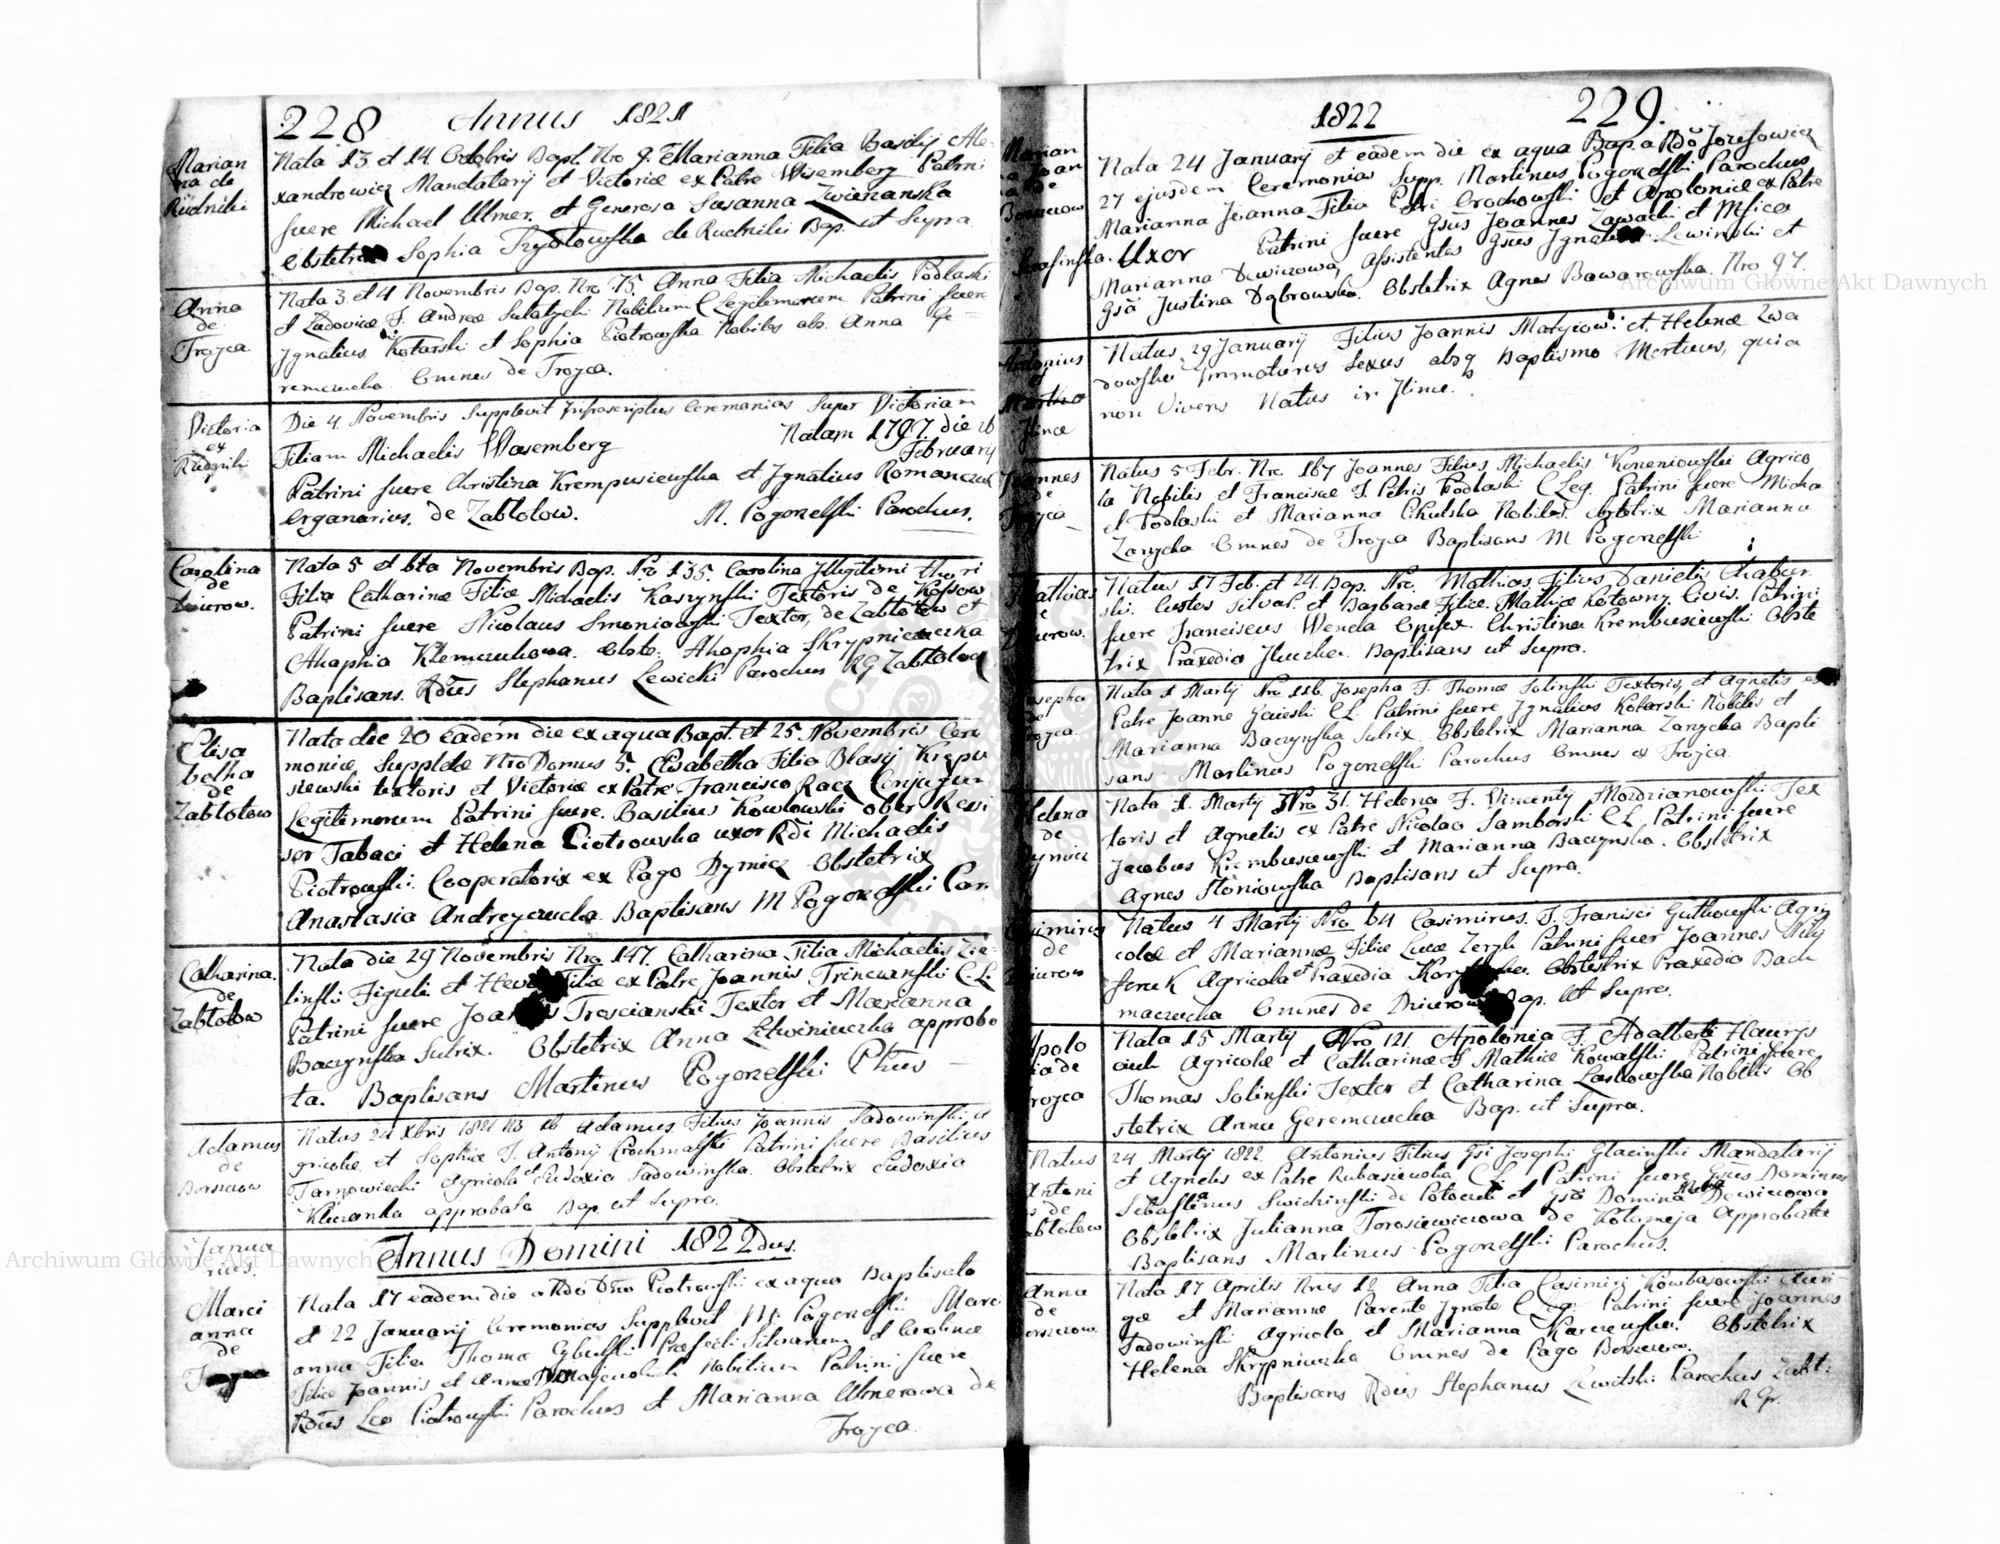 228 Annus 1821
Marian
na de
Rudniki
Nata 13 et 14 Octobris Bapt. Nro 9. Marianna Filia Basilij Ale-
xandrowicz Mandatarij et Victoriæ ex Patre Wisemberg Patrini
fuere Michael Ulmer et Generosa Susanna
Obstetrix Sophia de Rudniki Bap. ut Supra
Anna
de
Trojca
Nata 3 et 4 Novembris Bap. Nro 75. Anna Filia Michaelis Podlaski
et Ludovicæ F. Andreæ Nobilium C Legitimorum Patrini fuere
Ignatius Kotarski et Sophia Piotrowska Nobiles obs. Anna Ge-
remczucka Omnes de Trojca.
Victoria
ex
Rudniki
Die 4 Novembris Supplevit Infrascriptus Ceremonias Super Victoriam
Filiam Michaelis Wasemberg Natam 1797 die 26
February
Patrini fuere Christina Krempusiewska et Ignatius Romanczuk
Organarius. de Zabłotow. M. Pogorzelski Parochus.
Carolina
de
Dziurow.
Nata 5 et 6ta Novembris Bap. Nro 135. Carolina Illegitimi thori
Filia Catharinæ Filiæ Michaelis Kaszynski Textoris de Kossow
Patrini fuere Nicolaus Textor, de Zabłotow et
Ahaphia Klemczukowa. Obste: Ahaphia Skrypniczucka
Baptisans. Rdus Stephanus Lewicki Parochus RG Zabłotow
Elisa
betha
de
Zabłotow
Nata die 20 eadem die ex aqua Bapt. et 25 Novembris Cere
moniæ Suppletæ Nro Domus 5. Elisabetha Filia Blasij Krępu
siewski textoris et Victoriæ ex Patre Francisco Racz Conjugum
Legitimorum Patrini fuere. Basilius Kowłowski ober Revi
sor Tabaci et Helena Piotrowska uxor Rdi Michaelis
Piotrowski Cooperatoris ex Pago Dymicz Obstetrix
Anastasia Andreyczucka Baptisans M Pogorzelski Par.
Catharina
de
Zabłotow
Nata die 29 Novembris Nro 147. Catharina Filia Michaelis Zie-
linski Figuli et Filiæ ex Patre Joannis Trinczanski C L
Patrini fuere Joannes Trescianski Textor et Marianna
Baczynska Sutrix. Obstetrix Anna Letwiniuczka approba
ta. Baptisans Martinus Pogorzelski Phus
Adamus
de
Borszczow
Natus 24 Xbris 1821 N 26 Adamus Filius Joannis Sadowinski a
gricolæ et Sophiæ F. Antonij Krochmalski Patrini fuere Basilius
Tarnowiecki Agricola et Eudoxia Sadowinska. Obstetrix Eudoxia
approbata Bap. ut Supra.
Janua
rius.
Annus Domini 1822dus.
Marci
anna
de
Trojca
Nata 17 eadem die a Rdo Dno Piotrowski ex aqua Baptisata
et 22 Januarij Ceremonias Supplevit M. Pogorzelski Marci
anna Filia Thomæ Præfecti Silvarum et Carolinæ
Filiæ Joannis et Annæ Nobilium Patrini fuere
Rdus Leo Piotrowski Parochus et Marianna Ulmerowa de
Trojca
1822 229.
Marian
na Joan
na de
Borszczow
Nata 24 Januarij et eadem die ex aqua Bap. a Rdo Jozefowicz
27 ejusdem Ceremonias Supp. Martinus Pogorzelski Parochus
Marianna Joanna Filia Petri Grochowski et Apoloniæ ex Patre
Serafinska. Uxor Patrini fuere Gsus Joannes Zawacki et Mfica
Marianna Dewiczowa, Assistentes Gsus Ignatius Lewinski et
Gsa Justina Dąbrowska. Obstetrix Agnes Bawarowska. Nro 97.
Antonius
de
Ilince
Natus 29 January Filius Joannis et Helenæ Lewa
dowska Immaturus Sexus absq Baptismo Mortuus, quia
non Vivens Natus in Ilince.
Joannes
de
Trojca
Natus 5 Febr. Nro 167 Joannes Filius Michaelis Konieniowski Agrico
la Nobilis et Franciscæ F. Petris Podlaski C Leg. Patrini fuere Micha
el Podlaski et Marianna Nobiles. Obstetrix Marianna
Zarycka Omnes de Trojca Baptisans M Pogorzelski
Mathias
de
Dziurow.
Natus 17 Feb. et 24 Bap. Nro. Mathias Filius Danielis Chabur
ski. Custos Silvar. et Barbaræ Filiæ Mathiæ Kotowny. Civis. Patrini
fuere Franciscus Wencla Opifex. Christina Krembusiewski Obste
trix Praxedia Baptisans ut Supra.
Josepha
de
Trojca.
Nata 1 Martij Nro 116. Josepha F. Thomæ Solinski Textoris, et Agnetis ex
Patre Joanne Gaieski CL. Patrini fuere Ignatius Kotarski Nobilis et
Marianna Baczynska Sutrix. Obstetrix Marianna Zarycka Bapti
sans Martinus Pogorzelski Parochus Omnes ex Trojca.
Helena
de
Dymicz
Nata 1. Martij Nro 31. Helena F. Vincentij Mozdzianowski Tex
toris et Agnetis ex Patre Nicolao Samborski C L. Patrini fuere
Jacobus Krembusiewski et Marianna Baczynska. Obstetrix
Agnes Stoniowska Baptisans ut Supra.
Casimirus
de
Dziurow
Natus 4 Martij Nro 64 Casimirus. F. Francisci Gutkowski Agri
colæ et Mariannæ Filiæ Lucæ Zeryk Patrini fuer Joannes
Agricola et Praxedia Obstetrix Praxedia Dach
maczucka Omnes de Dziurow Bap. ut Supra.
Apolo
nia de
Trojca
Nata 15 Martij Nro 121. Apolonia F. Adalberti Hawrys
ciuk Agricolæ et Catharinæ F Mathiæ Kowalski Patrini fuere
Thomas Solinski Textor et Catharina Laskowska Nobilis Ob
stetrix Anna Geremczucka Bap. ut Supra.
Natus
Antoni
us de
Zabłotow
24 Martij 1822 Antonius Filius Gsi Josephi Glacinski Mandatarij
et Agnetis ex Patre Rubasiewska C L. Patrini fuere Gsus Dominus
Sebastianus Swichinski de Potoczek et Gsa Domina Dewiczowa
Obstetrix Julianna Torosiewiczowa de Kołomeja Approbata
Baptisans Martinus Pogorzelski Parochus.
Anna
de
Borszczow.
Nata 17 Aprilis Nrus 12 Anna Filia Casimiri Kowbasowski Auri
gæ et Mariannæ Parente Ignote C Leg: Patrini fuere Joannes
Sadowinski Agricola et Marianna Karczewska. Obstetrix
Helena Skrypniuczka Omnes de Pago Borszczow.
Baptisans Rdus Stephanus Lewitski Parochus Zabł:
R Gr.
Archiwum Główne Akt Dawnych
Archiwum Główne Akt Dawnych